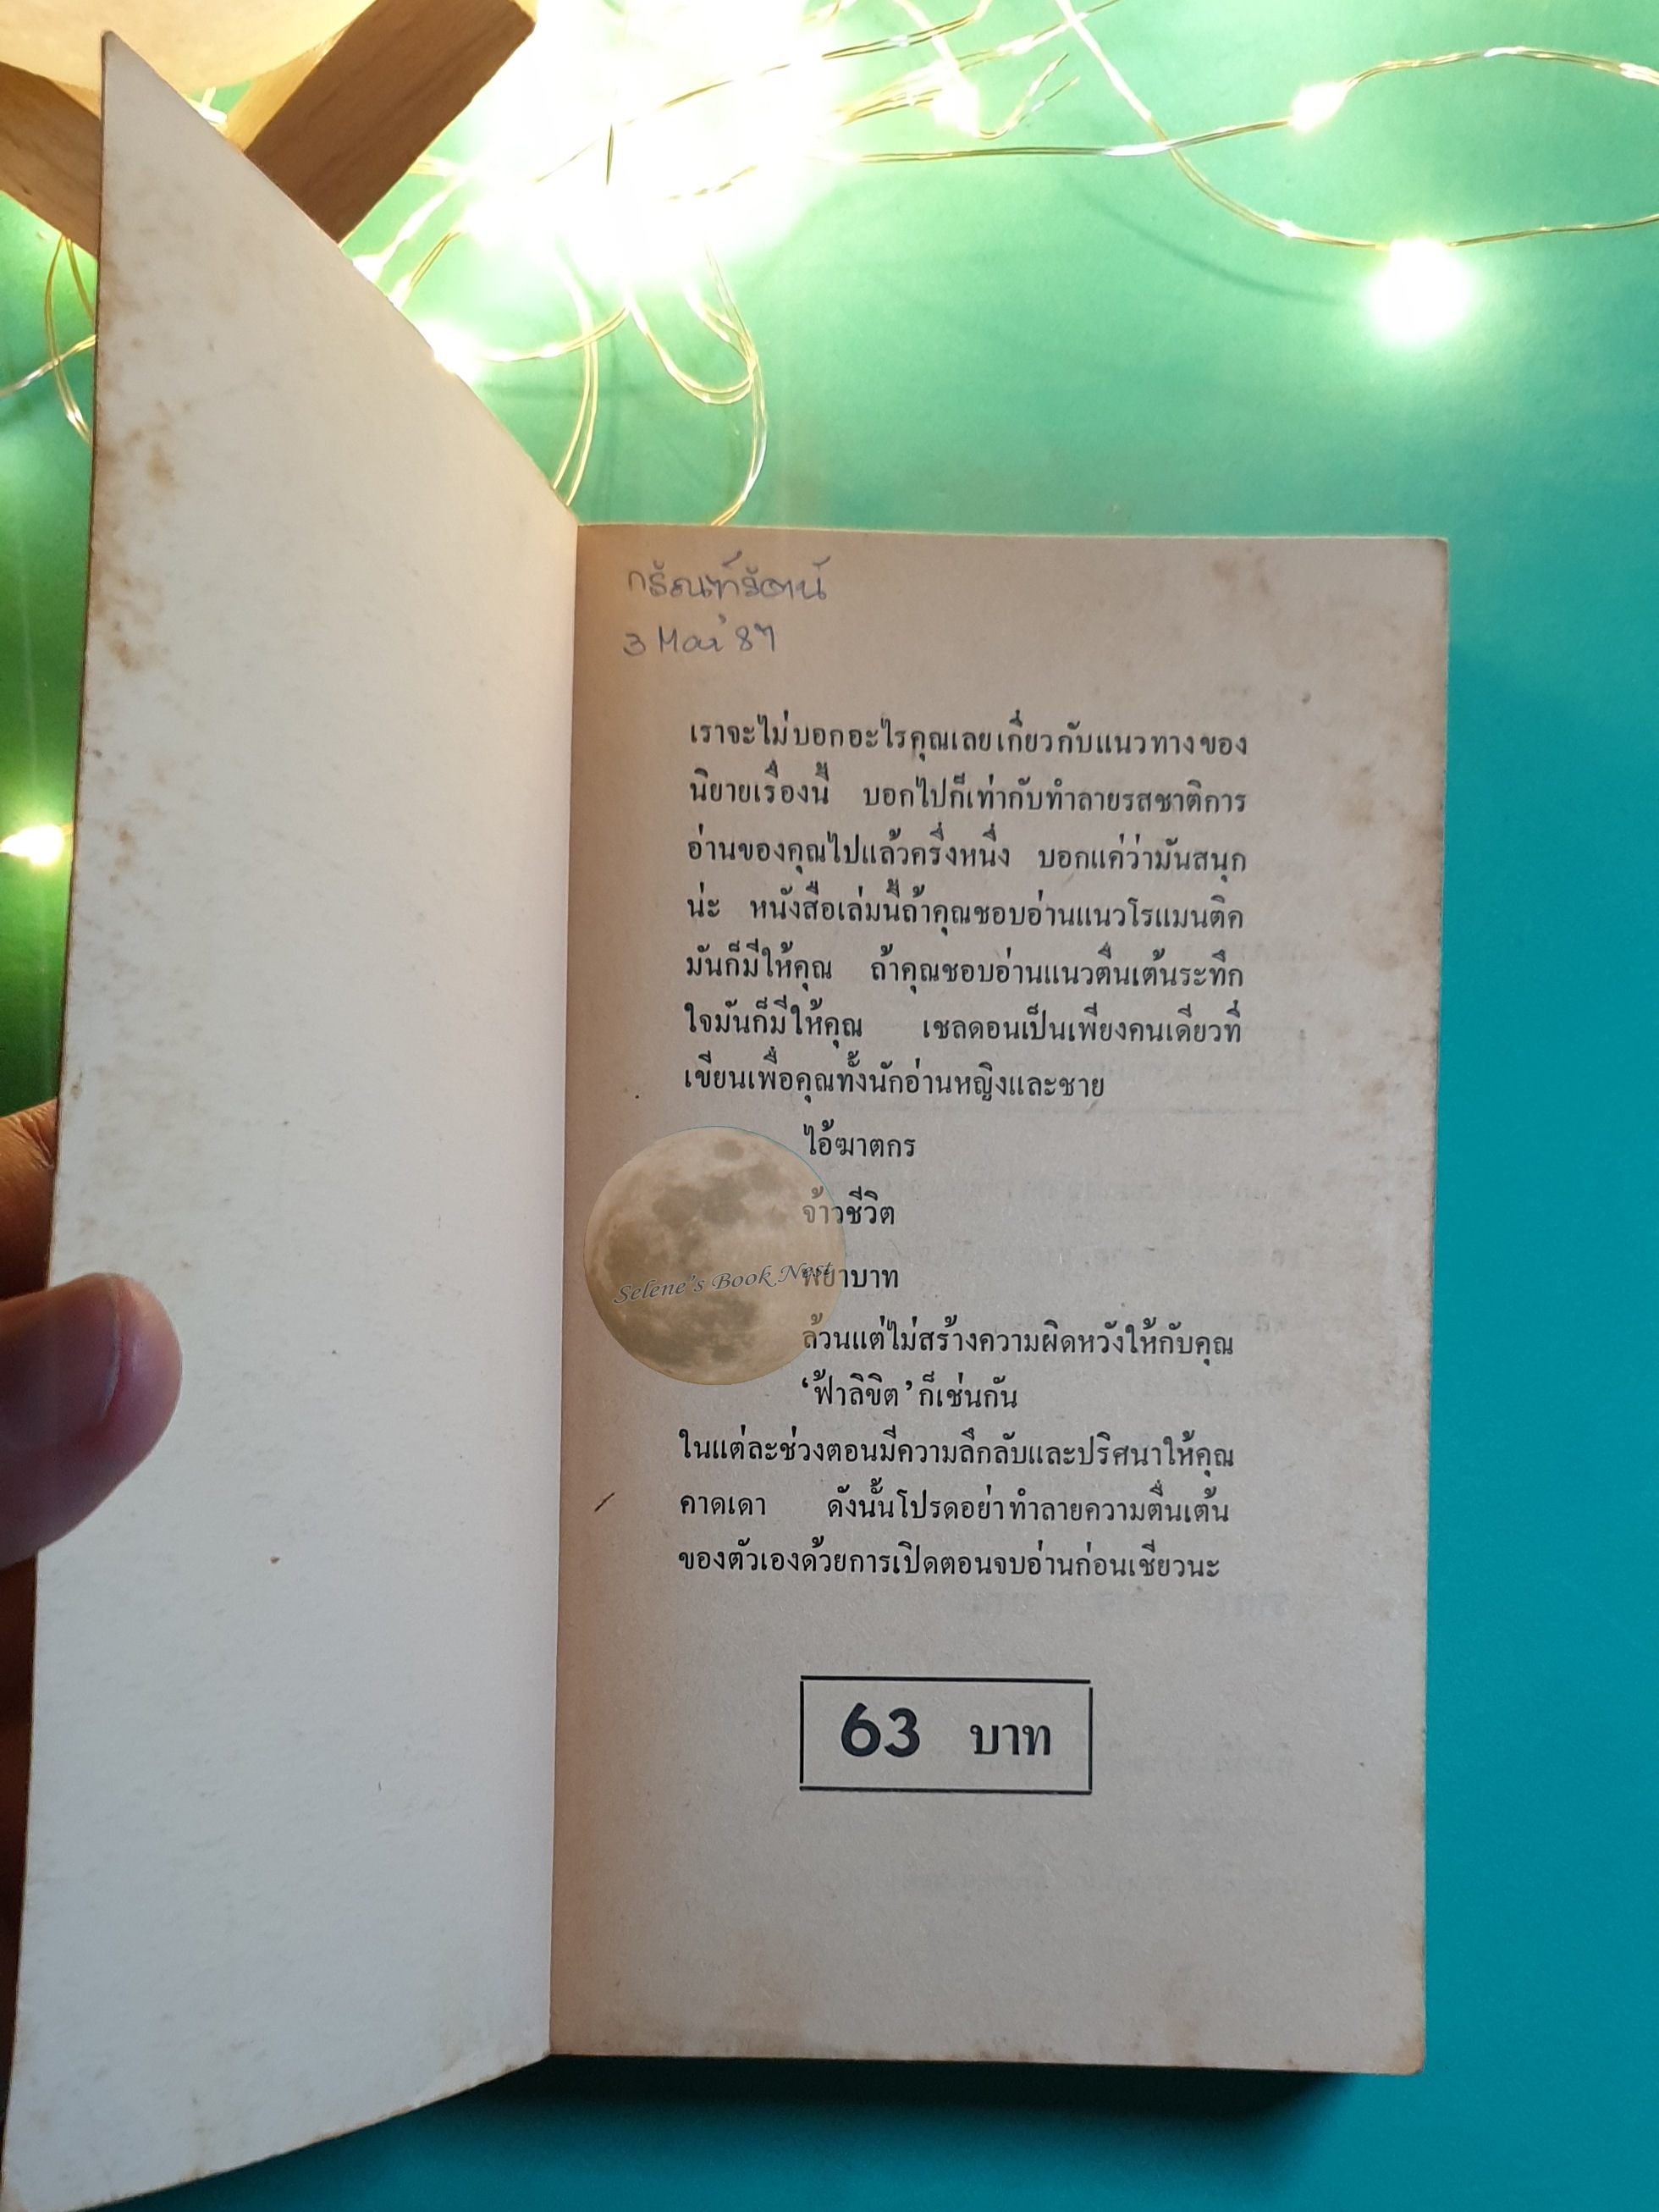 กรัณฑ์รัตน์
3 Mar' 87
เราจะไม่บอกอะไรคุณเลยเกี่ยวกับแนวทางของ
นิยายเรื่องนี้ บอกไปก็เท่ากับทำลายรสชาติการ
อ่านของคุณไปแล้วครึ่งหนึ่ง บอกแค่ว่ามันสนุก
น่ะ หนังสือเล่มนี้ถ้าคุณชอบอ่านแนวโรแมนติค
มันก็มีให้คุณ ถ้าคุณชอบอ่านแนวตื่นเต้นระทึก
ใจมันก็มีให้คุณ เชลดอนเป็นเพียงคนเดียวที่
เขียนเพื่อคุณทั้งนักอ่านหญิงและชาย
ไอ้ฆาตกร
จ้าวชีวิต
พยาบาท
Selene's Book Nest
ล้วนแต่ไม่สร้างความผิดหวังให้กับคุณ
‘ฟ้าลิขิต’ ก็เช่นกัน
ในแต่ละช่วงตอนมีความลึกลับและปริศนาให้คุณ
คาดเดา ดังนั้นโปรดอย่าทำลายความตื่นเต้น
ของตัวเองด้วยการเปิดตอนจบอ่านก่อนเชียวนะ
63 บาท